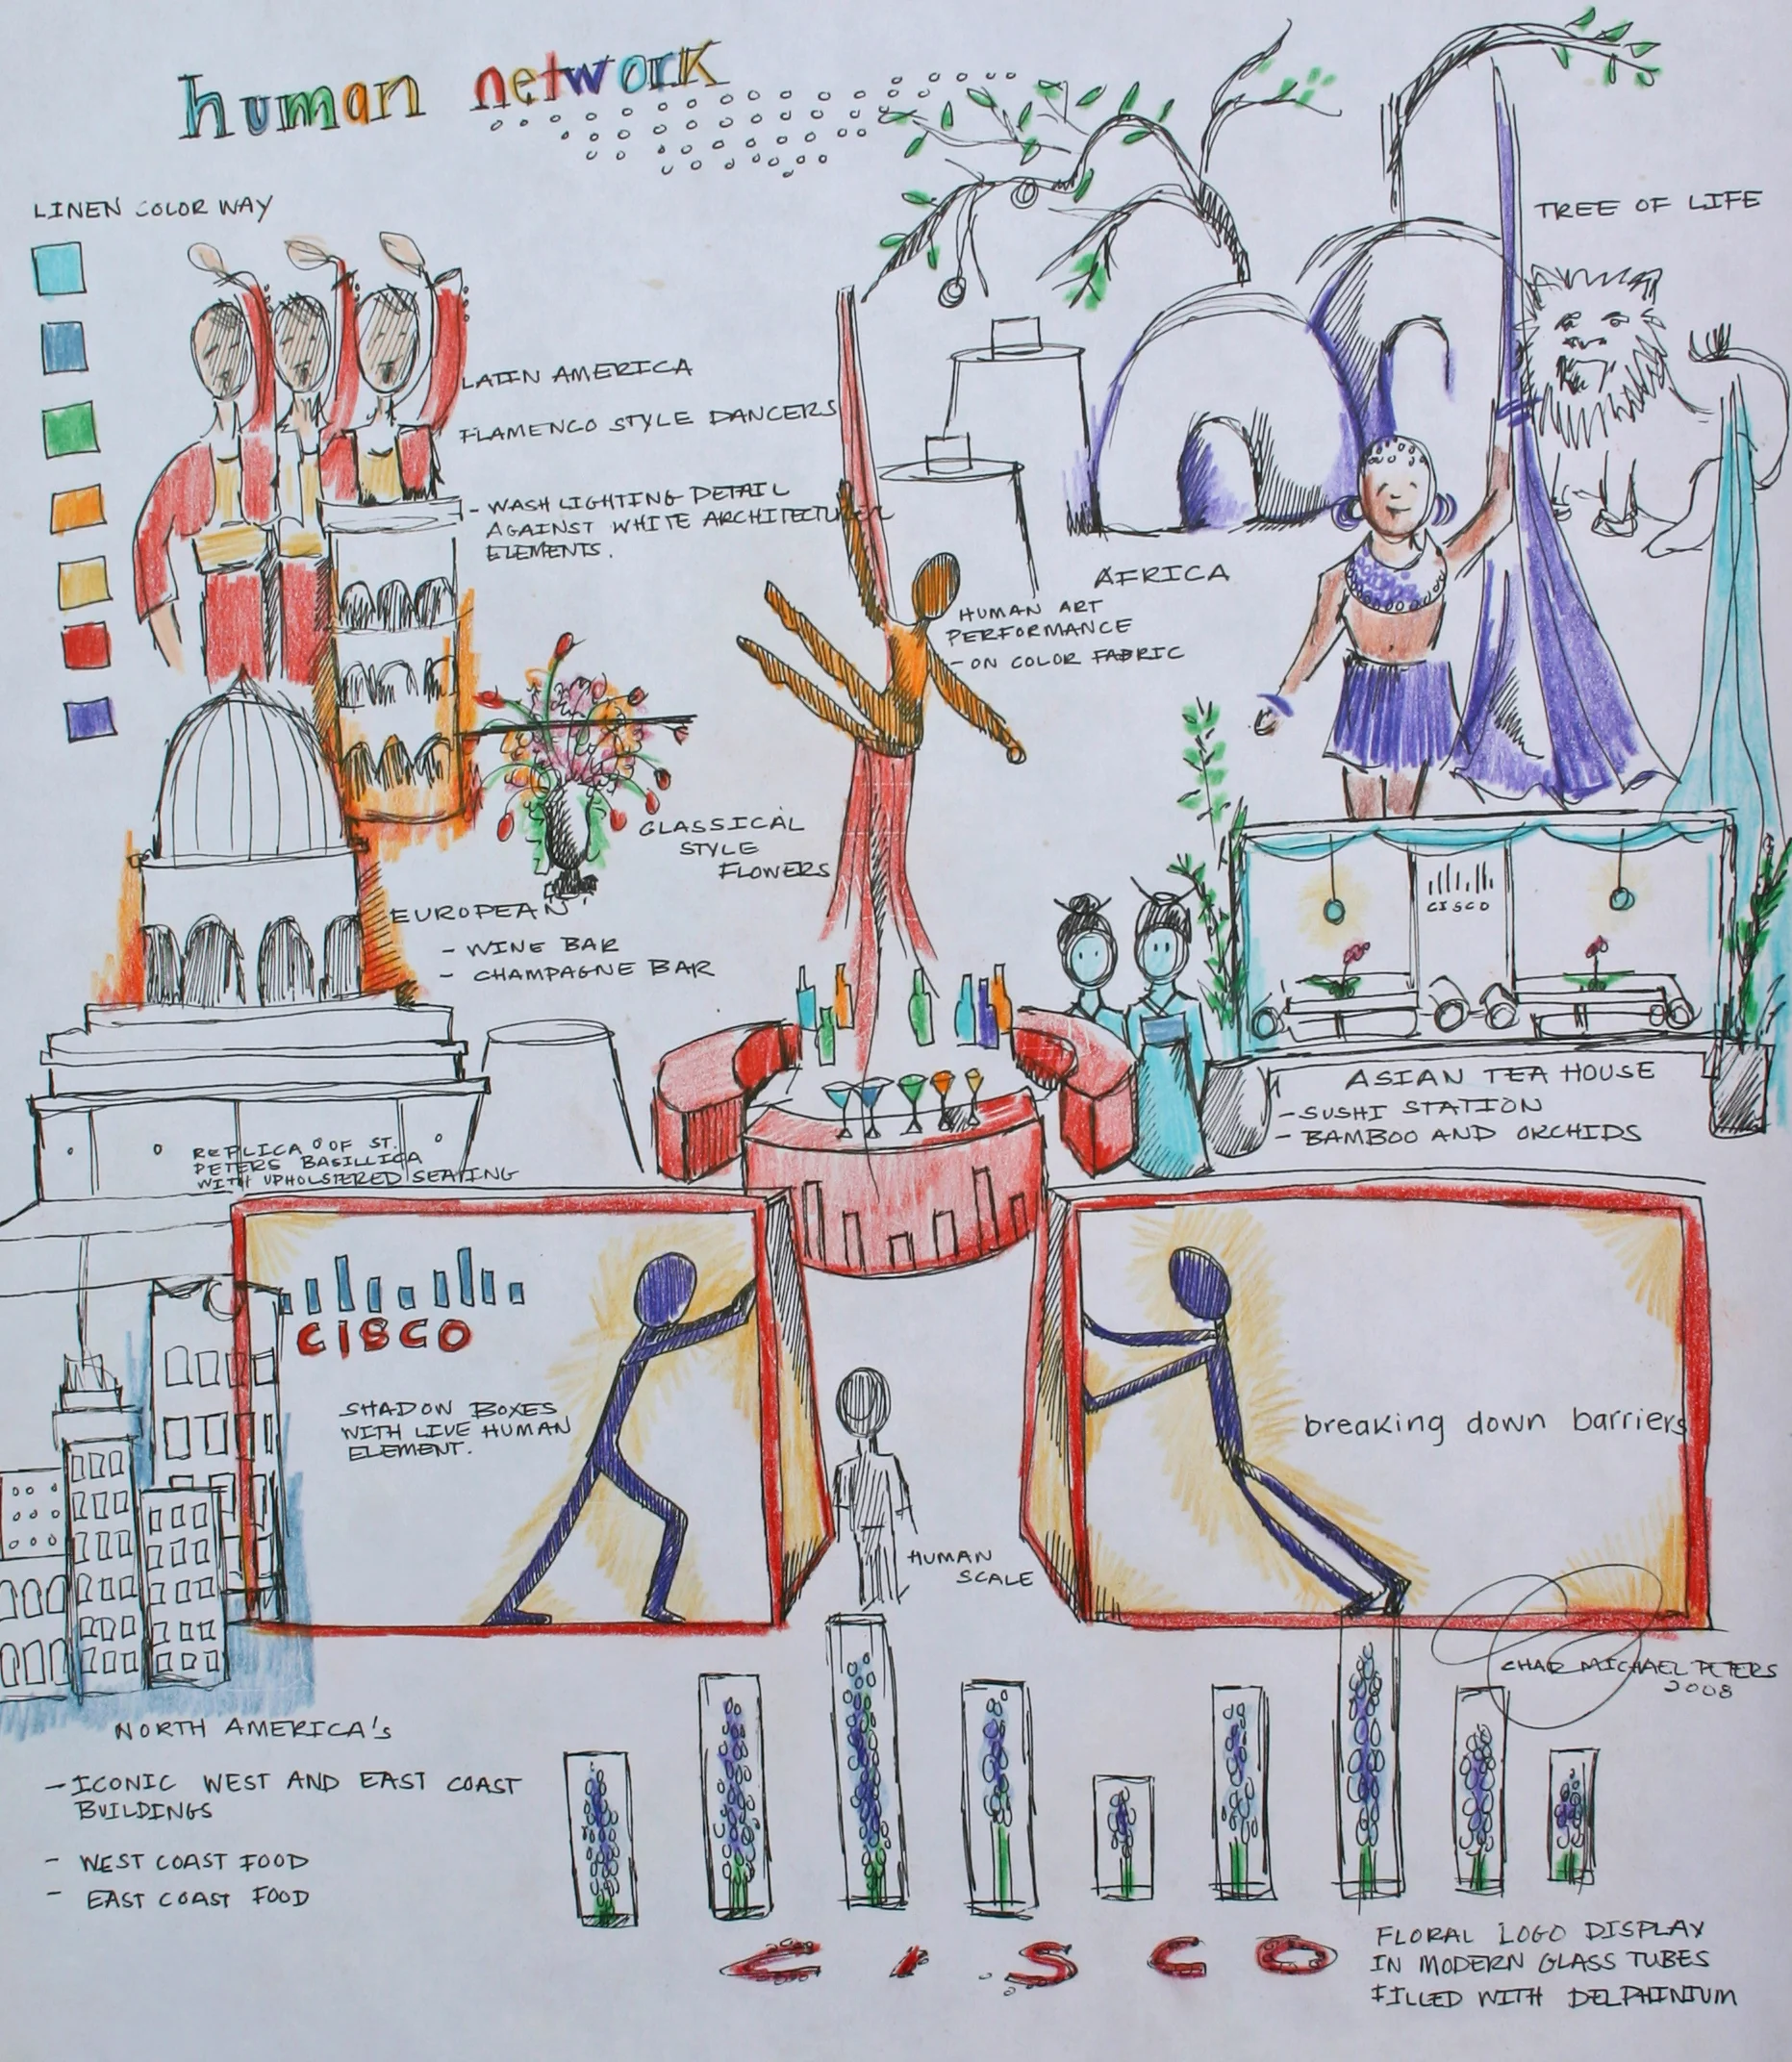 human network
LINEN COLOR WAY
TREE OF LIFE
LATIN AMERICA
FLAMENCO STYLE DANCERS
- WASH LIGHTING DETAIL
AGAINST WHITE ARCHITECTURAL
ELEMENTS.
AFRICA
HUMAN ART
PERFORMANCE
- ON COLOR FABRIC
CLASSICAL
STYLE
FLOWERS
EUROPEAN
- WINE BAR
- CHAMPAGNE BAR
CISCO
ASIAN TEA HOUSE
- SUSHI STATION
- BAMBOO AND ORCHIDS
REPLICA OF ST.
PETERS BASILLICA
WITH UPHOLSTERED SEATING
CISCO
SHADOW BOXES
WITH LIVE HUMAN
ELEMENT.
breaking down barriers
HUMAN
SCALE
CHAD MICHAEL PETERS
2008
NORTH AMERICA'S
- ICONIC WEST AND EAST COAST
BUILDINGS
- WEST COAST FOOD
- EAST COAST FOOD
CISCO
FLORAL LOGO DISPLAY
IN MODERN GLASS TUBES
FILLED WITH DELPHINIUM